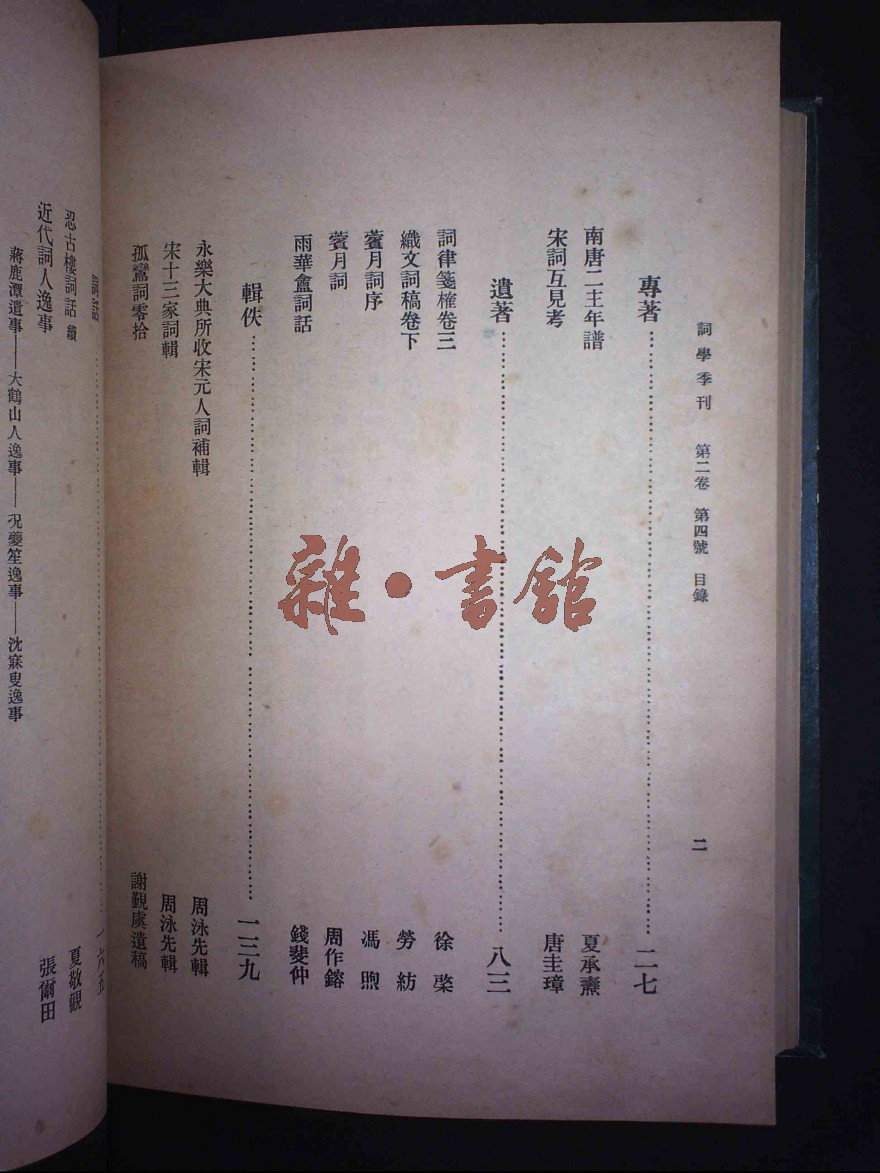 詞學季刊 第二卷 第四號 目錄 二
專著……二七
南唐二主年譜 夏承燾
宋詞互見考 唐圭璋
遺著……八三
詞律箋榷卷三 徐棨
織文詞稿卷下 勞紡
薲月詞序 馮煦
薲月詞 周作鎔
雨華盦詞話 錢斐仲
輯佚……一三九
永樂大典所收宋元人詞補輯 周泳先輯
宋十三家詞輯 周泳先輯
孤鸞詞零拾 謝覲虞遺稿
詞話……一六五
忍古樓詞話 續 夏敬觀
近代詞人逸事 張爾田
蔣鹿潭遺事——大鶴山人逸事——況夔笙逸事——沈寐叟逸事
雜·書館